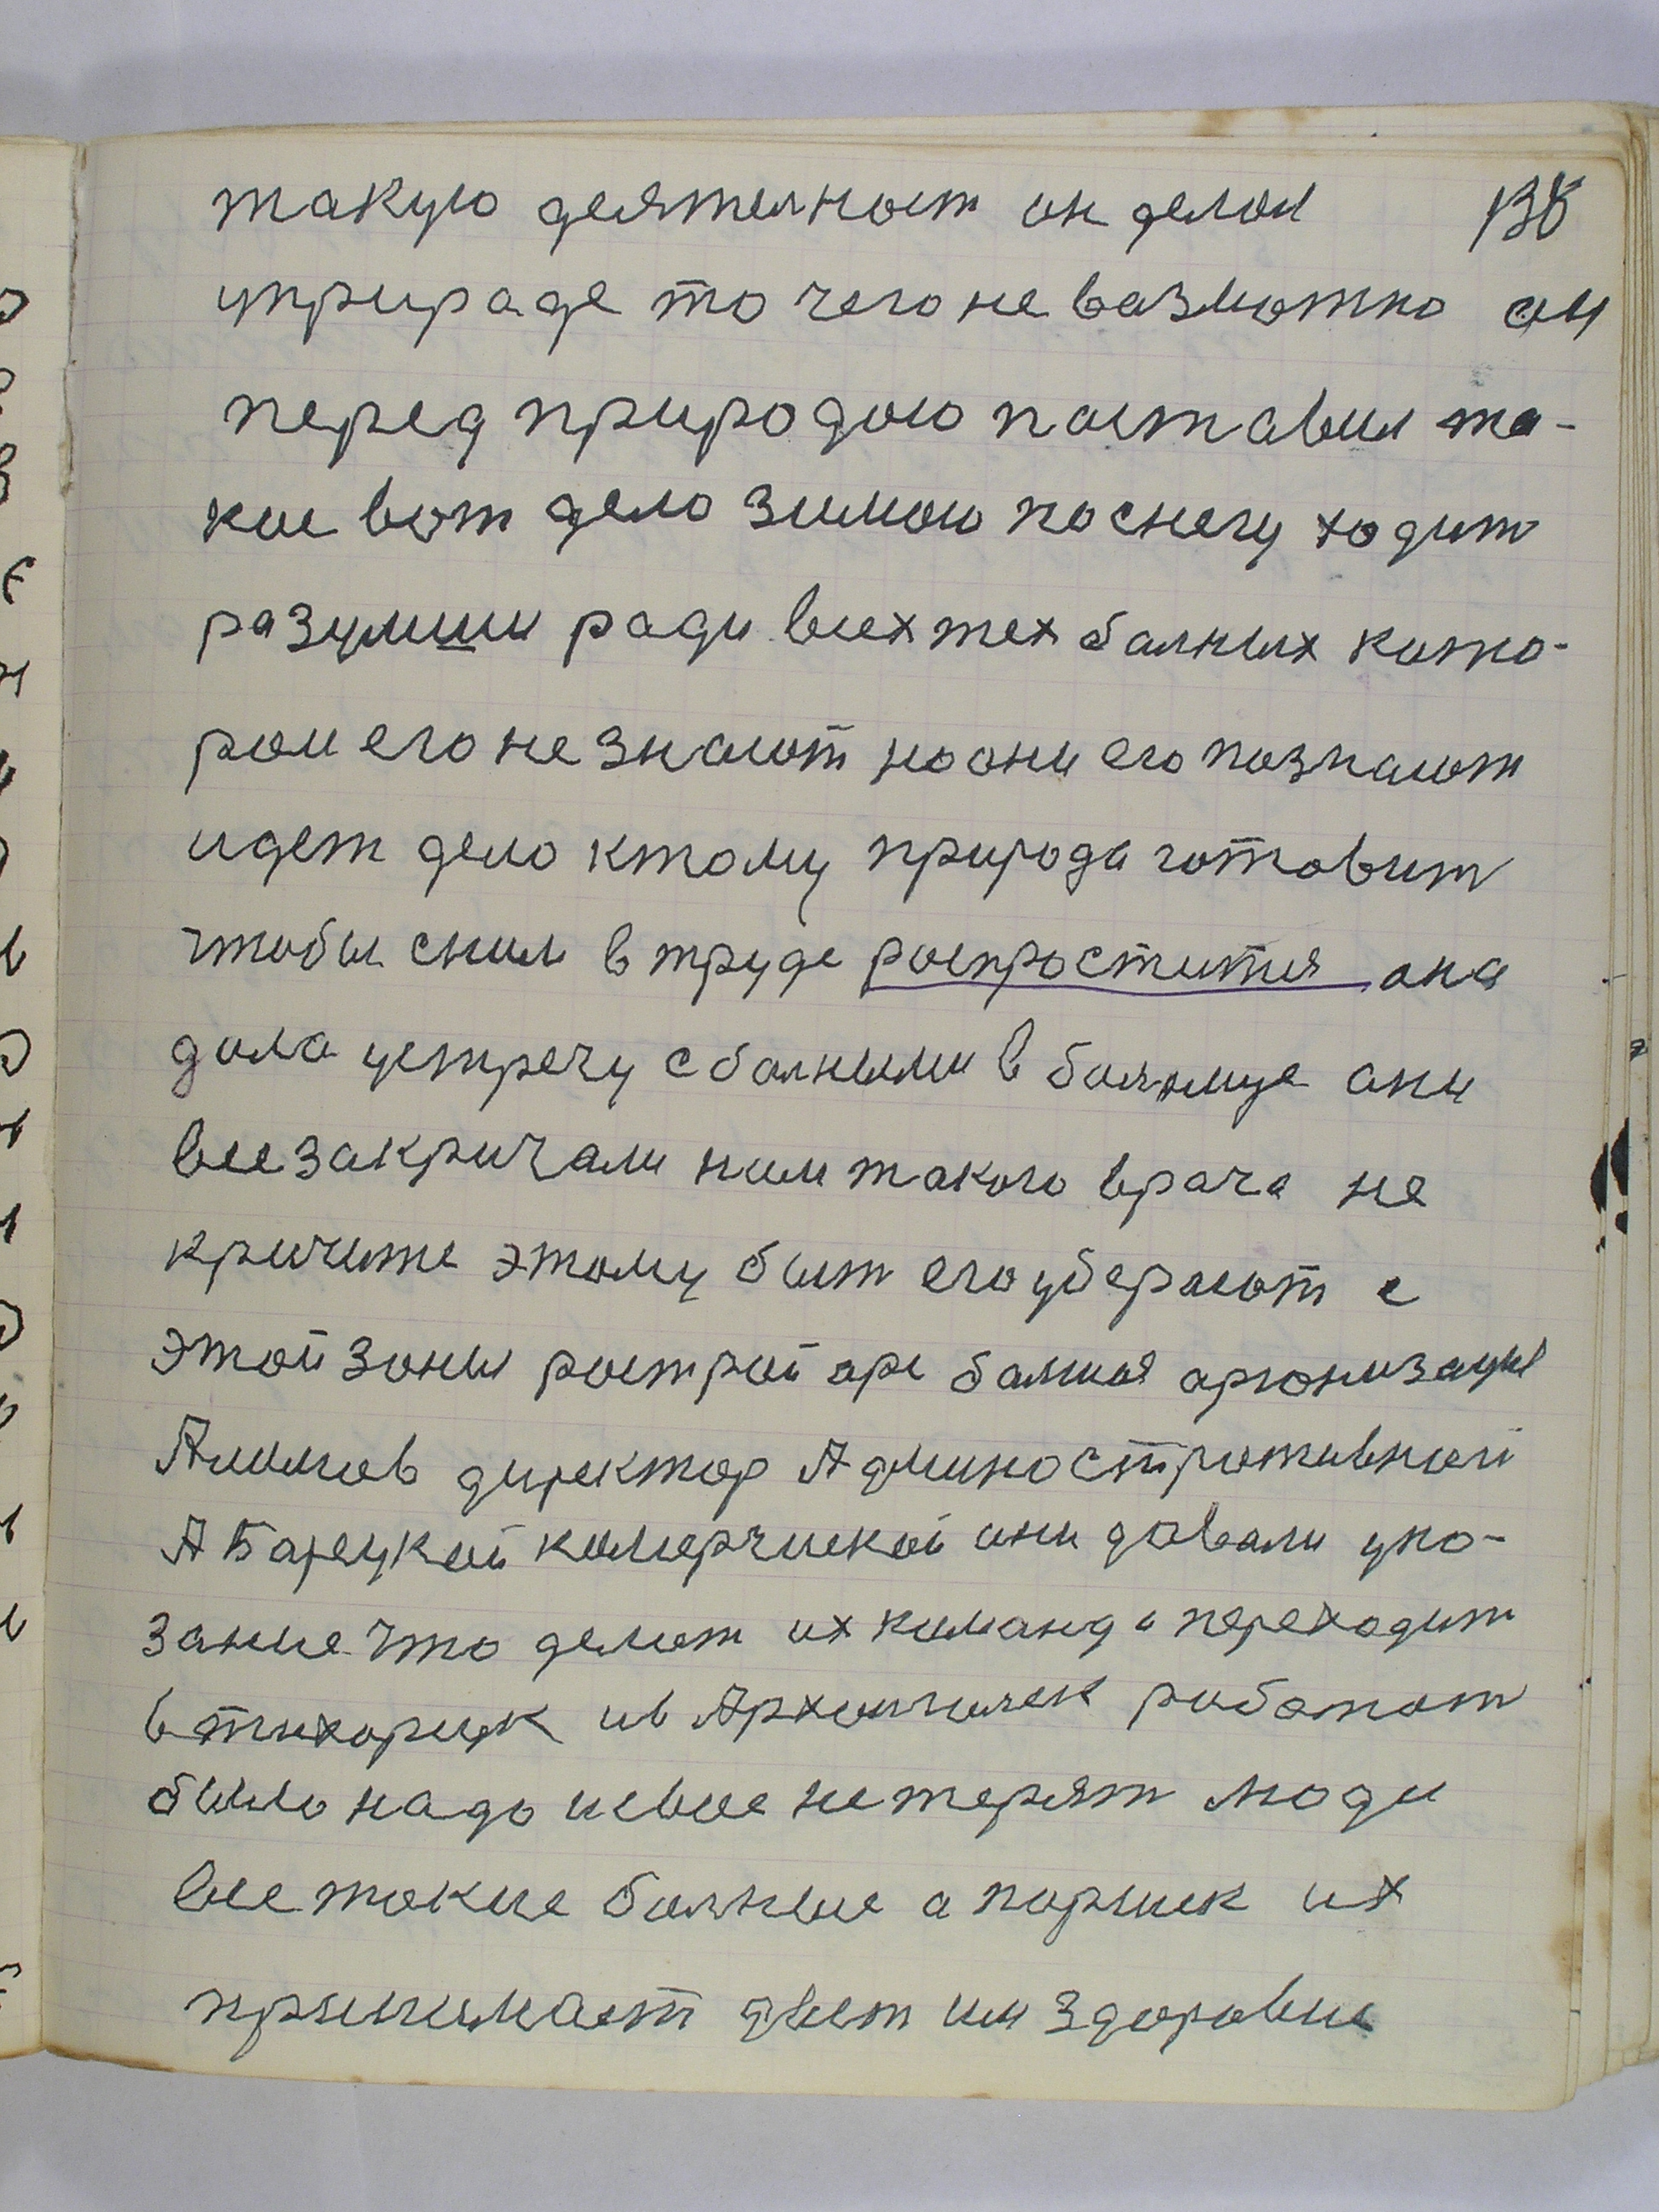 такую деятелност он делал 138
уприраде то чего не вазможно он
перед природою поставил та-
кое вот дело зимою поснегу ходит
разумши ради всех тех балных кото-
рои его не знают но они его познают
идет дело ктому природа готовит
чтобы сним в труде роспроститися она
дала устречу с балными в болнице они
все закричали ним такого врача не
кричите этому быт его уберают с
этой зоны рострой оре балшая аргонизацие
директор Админостротивной
А Барецкой комерчиской они довали ука-
зание что делат их команда переходит
в тихорецк ив работат
было надо исвое нетерят люди
все токие болные а поршек их
принимает дает им здоровие